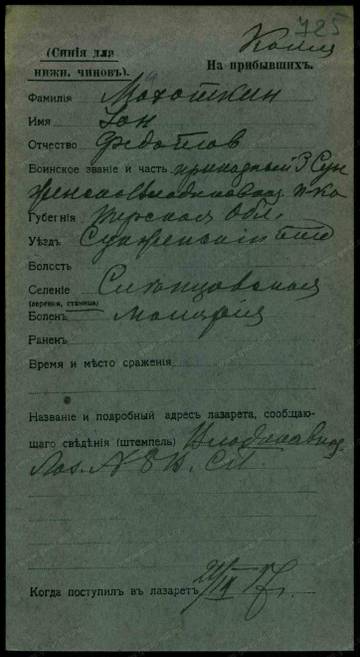 725
Копия
(Синія для
нижн. чиновъ).
На прибывшихъ.
Фамилія Махоткин
Имя
Отчество Федотов
Воинское званіе и часть приказный 3 Сун
женско Владикавказ п-ка
Губернія Терская обл.
Уѣздъ Сунженскій
Волость
Селеніе
(деревня, станица)
Боленъ малярия
Раненъ
Время и мѣсто сраженія
Названіе и подробный адресъ лазарета, сообщаю-
щаго свѣдѣнія (штемпель) Владикавказ.
Лаз. N 8
Когда поступилъ въ лазаретъ 21/IX 17 г.